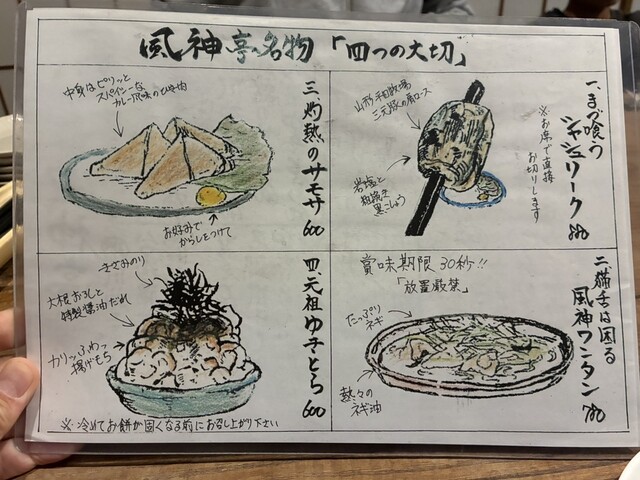 風神亭名物「四つの大切」
一、まづ喰う
シャシュリーク 880
※お席で直接
お切りします
山形平田牧場
三元豚の肩ロース
岩塩と
粗挽き
黒こしょう
二、猫舌は困る
風神ワンタン 780
賞味期限30秒!!
「放置厳禁」
たっぷり
ネギ
熱々の
ネギ油
三、灼熱のサモサ 600
中身はピリッと
スパイシーな
カレー風味のひき肉
お好みで
からしをつけて
四、元祖ゆきとら 600
きざみのり
大根おろしと
特製醤油だれ
カリッふわっ
揚げもち
※冷めてお餅が固くなる前にお召し上がり下さい